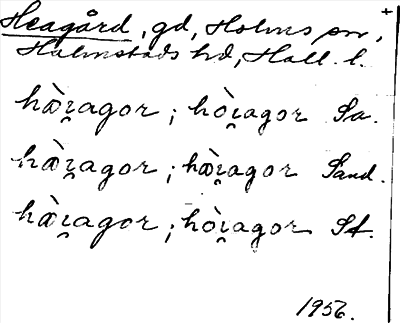 +
Heagård, gd, Holms sn,
Halmstads hd, Hall. l.
hæ̀ı̯agor ; hòı̯agor Sa.
hæ̀ı̯agor ; hæ̀ı̯agor Sand.
hæ̀ı̯agor ; hòı̯agor St.
1956.